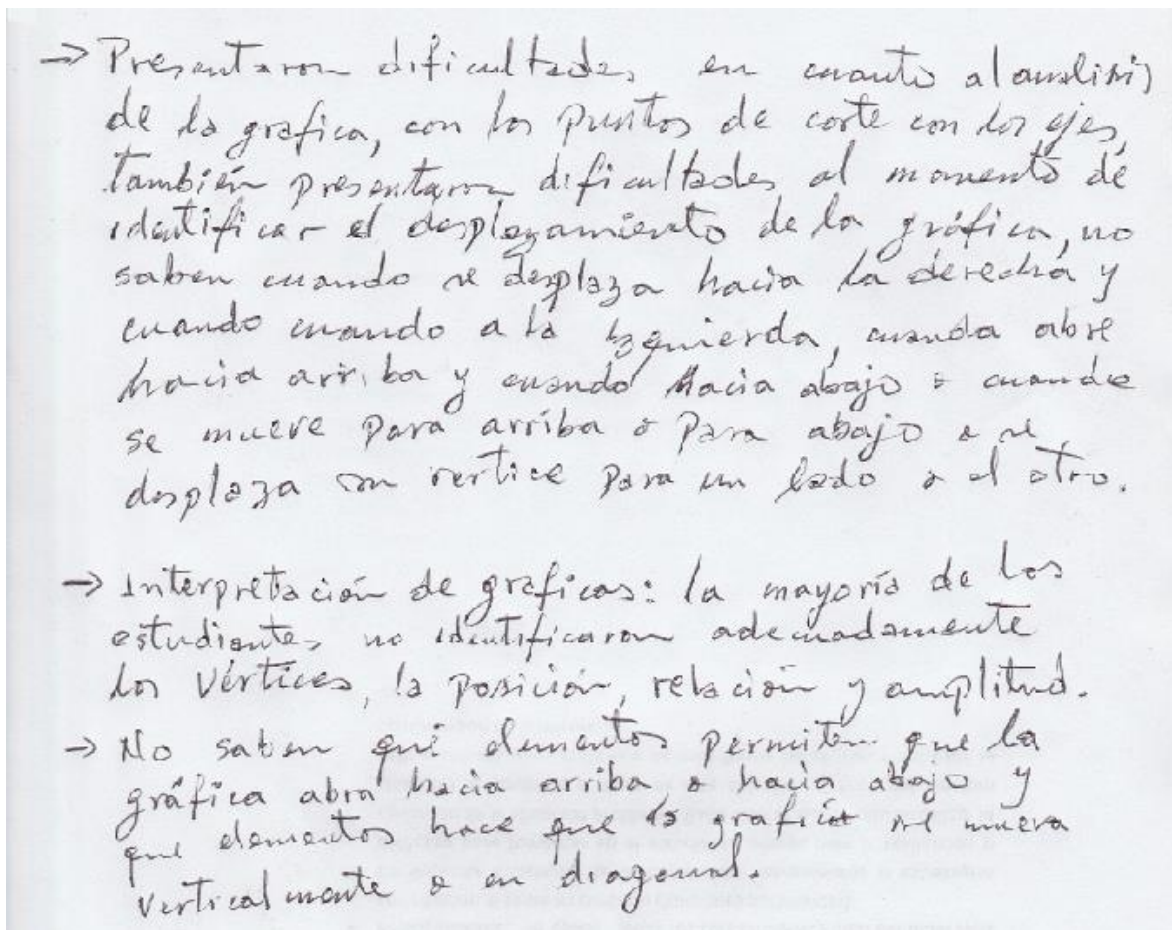 → Presentaron dificultades en cuanto al analisis
de la grafica, con los puntos de corte con los ejes,
también presentaron dificultades al momento de
identificar el desplazamiento de la gráfica, no
saben cuando se desplaza hacia la derecha y
cuando cuando a la izquierda, cuando abre
hacia arriba y cuando hacia abajo o cuando
se mueve para arriba o para abajo o se
desplaza su vertice para un lado o al otro.
→ Interpretación de graficas: la mayoría de los
estudiantes no identificaron adecuadamente
los vértices, la posición, relación y amplitud.
→ No saben qué elementos permiten que la
gráfica abra hacia arriba, o hacia abajo y
que elementos hace que la grafica se mueva
verticalmente o en diagonal.